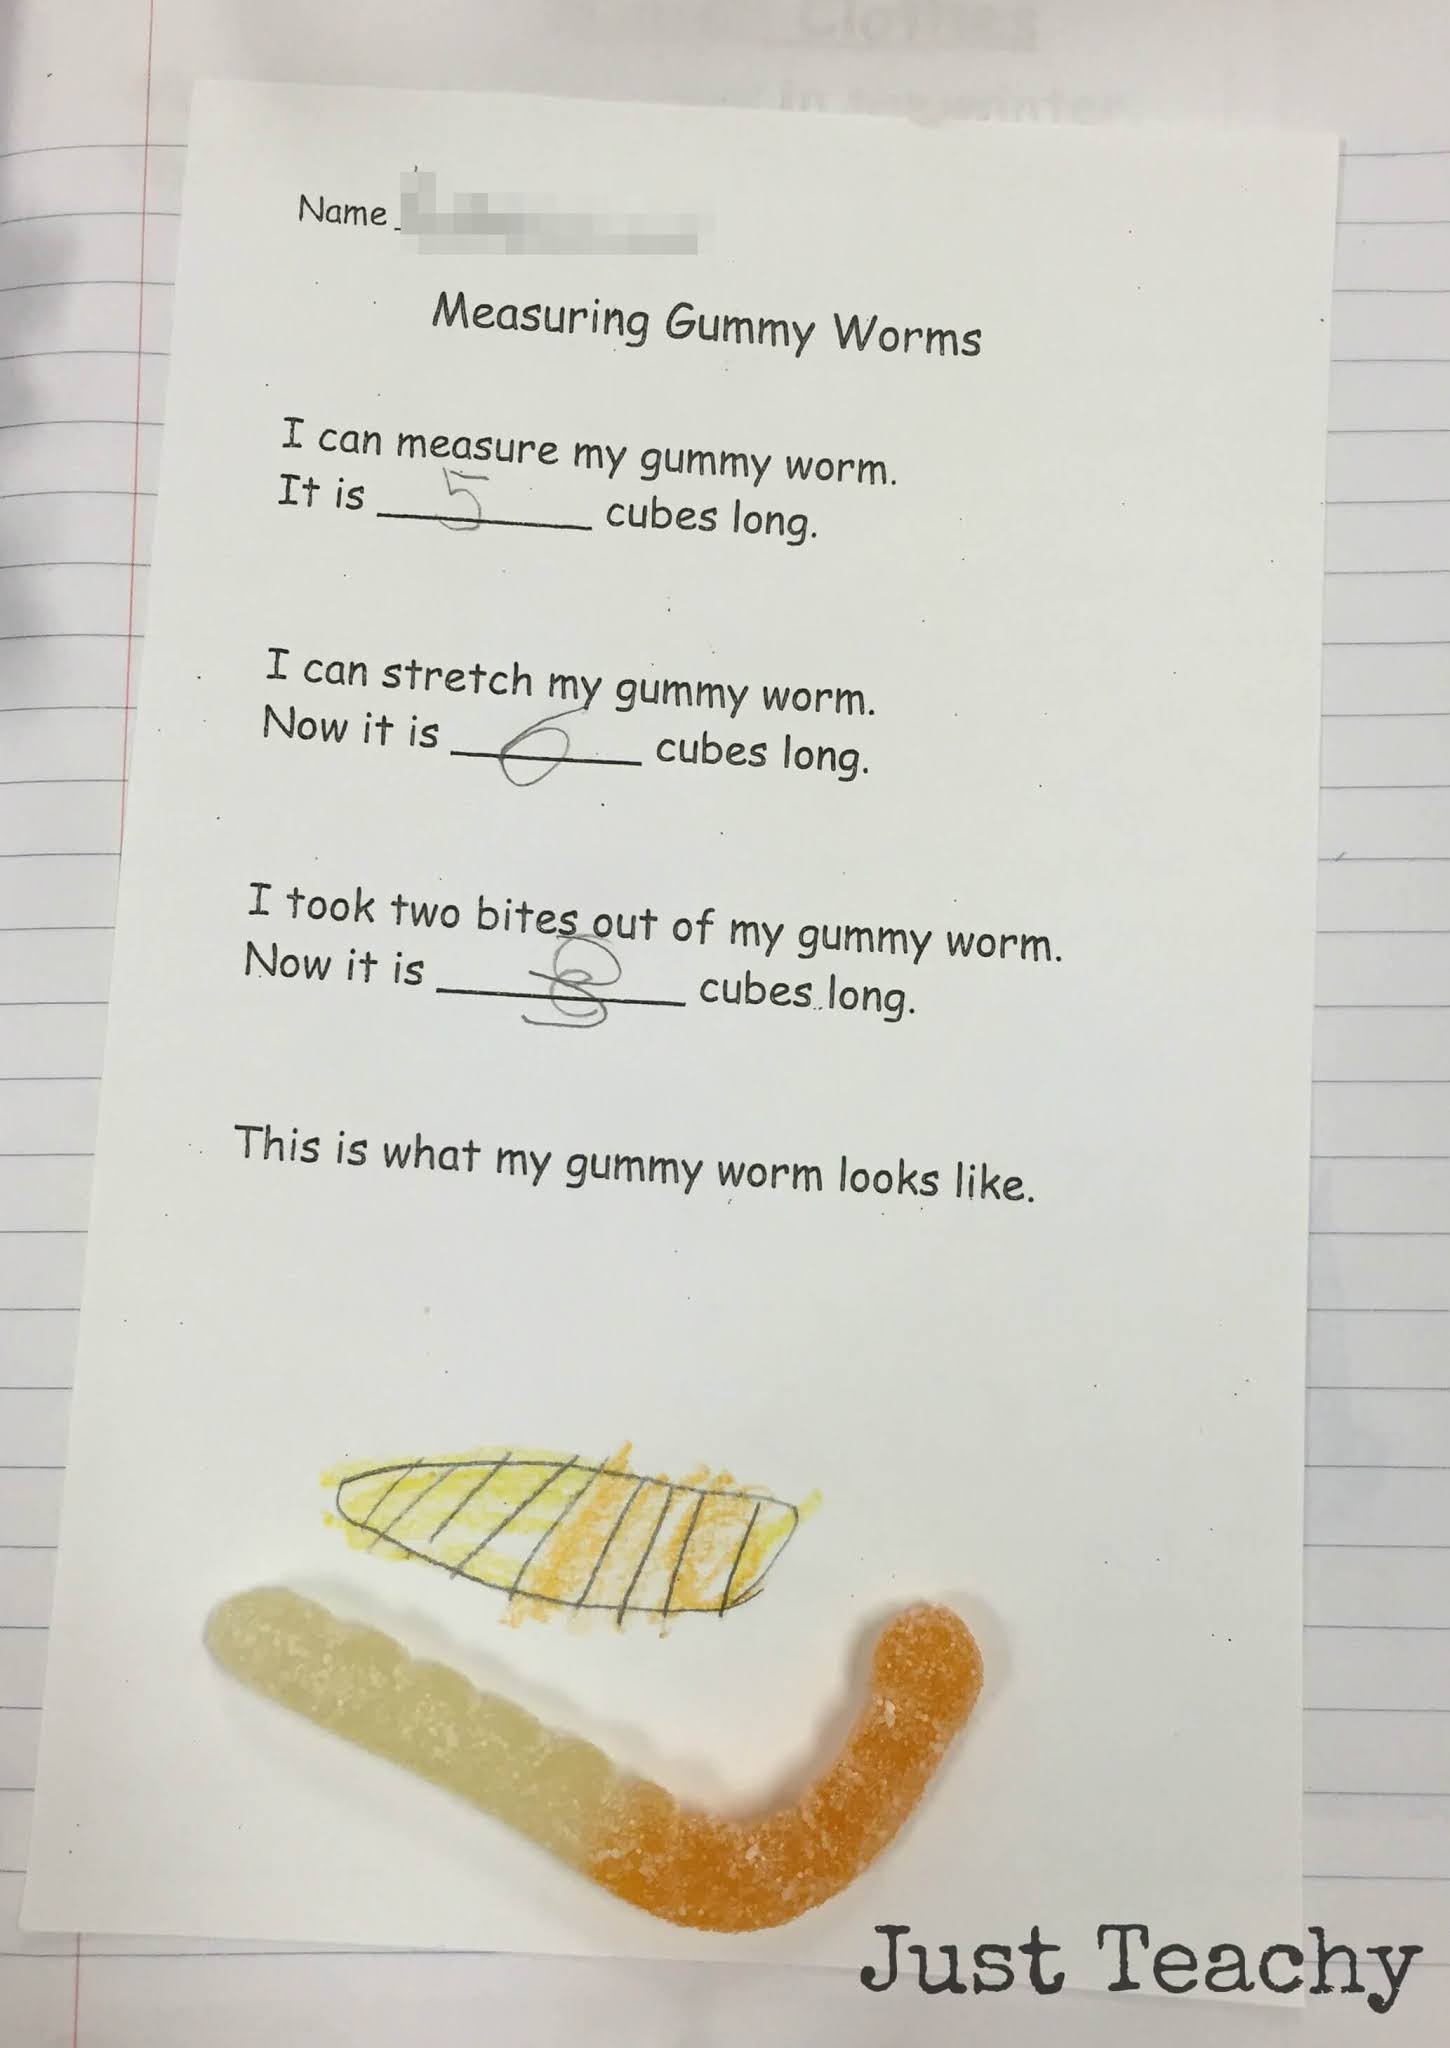 Name
Measuring Gummy Worms
I can measure my gummy worm.
It is 5 cubes long.
I can stretch my gummy worm.
Now it is 6 cubes long.
I took two bites out of my gummy worm.
Now it is cubes long.
This is what my gummy worm looks like.
Just Teachy